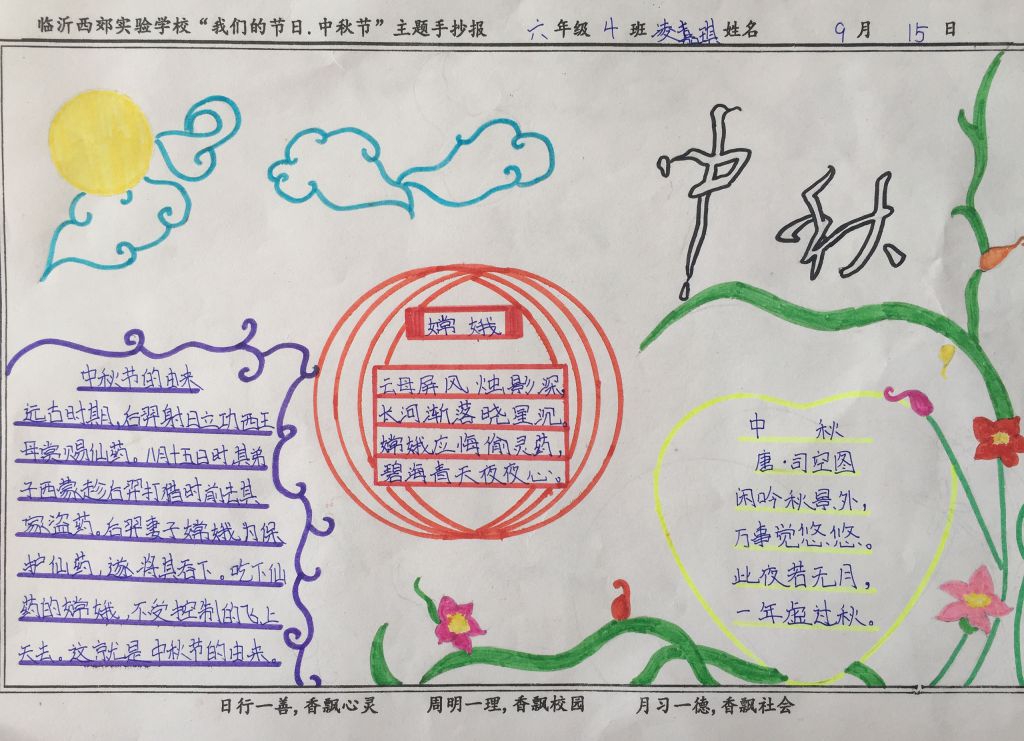 临沂西郊实验学校“我们的节日.中秋节”主题手抄报 六年级 4 班 凌嘉琪 姓名 9 月 15 日
中秋
中秋节的由来
远古时期,后羿射日立功西王
母赏赐仙药。八月十五日时其弟
子西蒙趁后羿打猎时前往其
家盗药。后羿妻子嫦娥为保
护仙药,遂将其吞下。吃下仙
药的嫦娥,不受控制的飞上
天去。这就是中秋节的由来。
嫦娥
云母屏风烛影深,
长河渐落晓星沉。
嫦娥应悔偷灵药,
碧海青天夜夜心。
中 秋
唐·司空图
闲吟秋景外,
万事觉悠悠。
此夜若无月,
一年虚过秋。
日行一善,香飘心灵 周明一理,香飘校园 月习一德,香飘社会